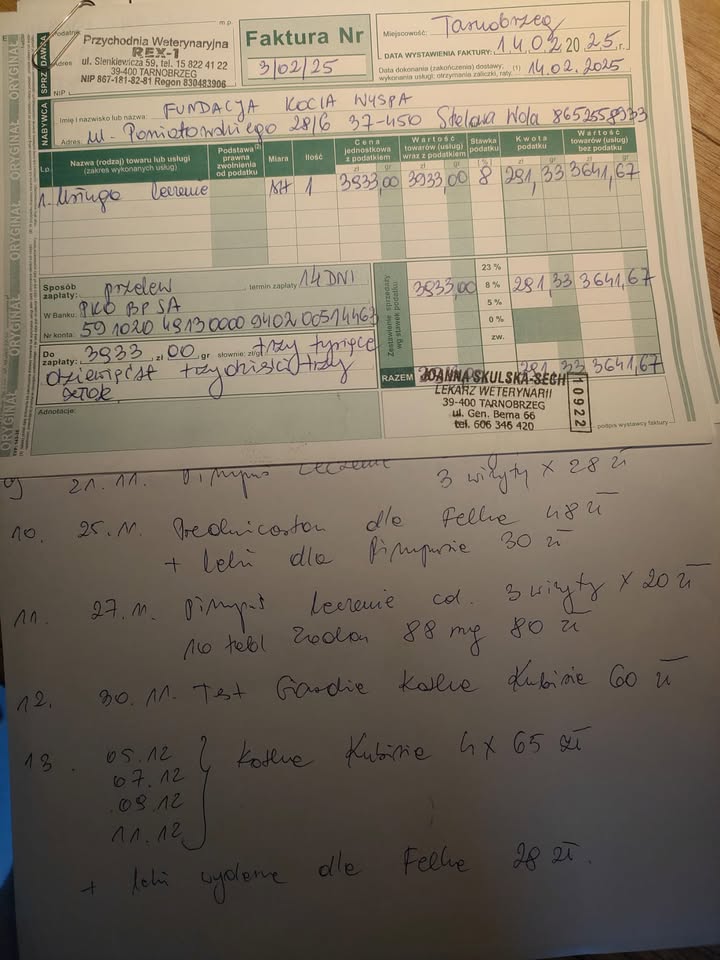 m.p.
Przychodnia Weterynaryjna
REX-1
ul. Sienkiewicza 59, tel. 15 822 41 22
39-400 TARNOBRZEG
NIP 867-181-82-81 Regon 830483906
NIP
Faktura Nr
3/02/25
Miejscowość: Tarnobrzeg
DATA WYSTAWIENIA FAKTURY: 14.02.2025.r.
Data dokonania (zakończenia) dostawy; (1) 14.02.2025
wykonania usługi; otrzymania zaliczki, raty,
ORYGINAŁ
SPRZEDAWCA
NABYWCA
Imię i nazwisko lub nazwa: FUNDACJA KOCIA WYSPA
Adres: ul. Poniatowskiego 28/6 37-450 Stalowa Wola 8652558973
Lp. Nazwa (rodzaj) towaru lub usługi (zakres wykonanych usług) Podstawa prawna zwolnienia od podatku Miara Ilość Cena jednostkowa z podatkiem Wartość towarów (usług) wraz z podatkiem Stawka podatku Kwota podatku Wartość towarów (usług) bez podatku
zł gr zł gr (%) zł gr zł gr
1. Usługa leczenie 1 3933,00 3933,00 8 291,33 3641,67
Sposób zapłaty: przelew termin zapłaty 14 DNI
W Banku: PKO BP SA
Nr konta: 59 1020 4913 0000 9402 0051 4463
Do zapłaty: 3933 zł 00 gr słownie: zł/gr trzy tysiące
dziewięćset trzydzieści trzy
złote
Zestawienie sprzedaży wg stawek podatku
23 %
3933,00 8 % 291,33 3641,67
5 %
0 %
zw.
RAZEM 291 33 3641,67
Adnotacje:
JOANNA SKULSKA-SECH
LEKARZ WETERYNARII
39-400 TARNOBRZEG
ul. Gen. Berna 66
tel. 606 346 420
10922
podpis wystawcy faktury
9) 21.11. Pimpuś leczenie 3 wizyty x 28 zł
10. 25.11. dla Felka 48 zł
+ leki dla Pimpusia 30 zł
11. 27.11. Pimpuś leczenie cd. 3 wizyty x 20 zł
10 tabl 88 mg 80 zł
12. 30.11. Test Giardia Kotka Kubisia 60 zł
13. 05.12
07.12
09.12
11.12
Kotka Kubisia 4 x 65 zł
+ leki wydane dla Felka 28 zł.